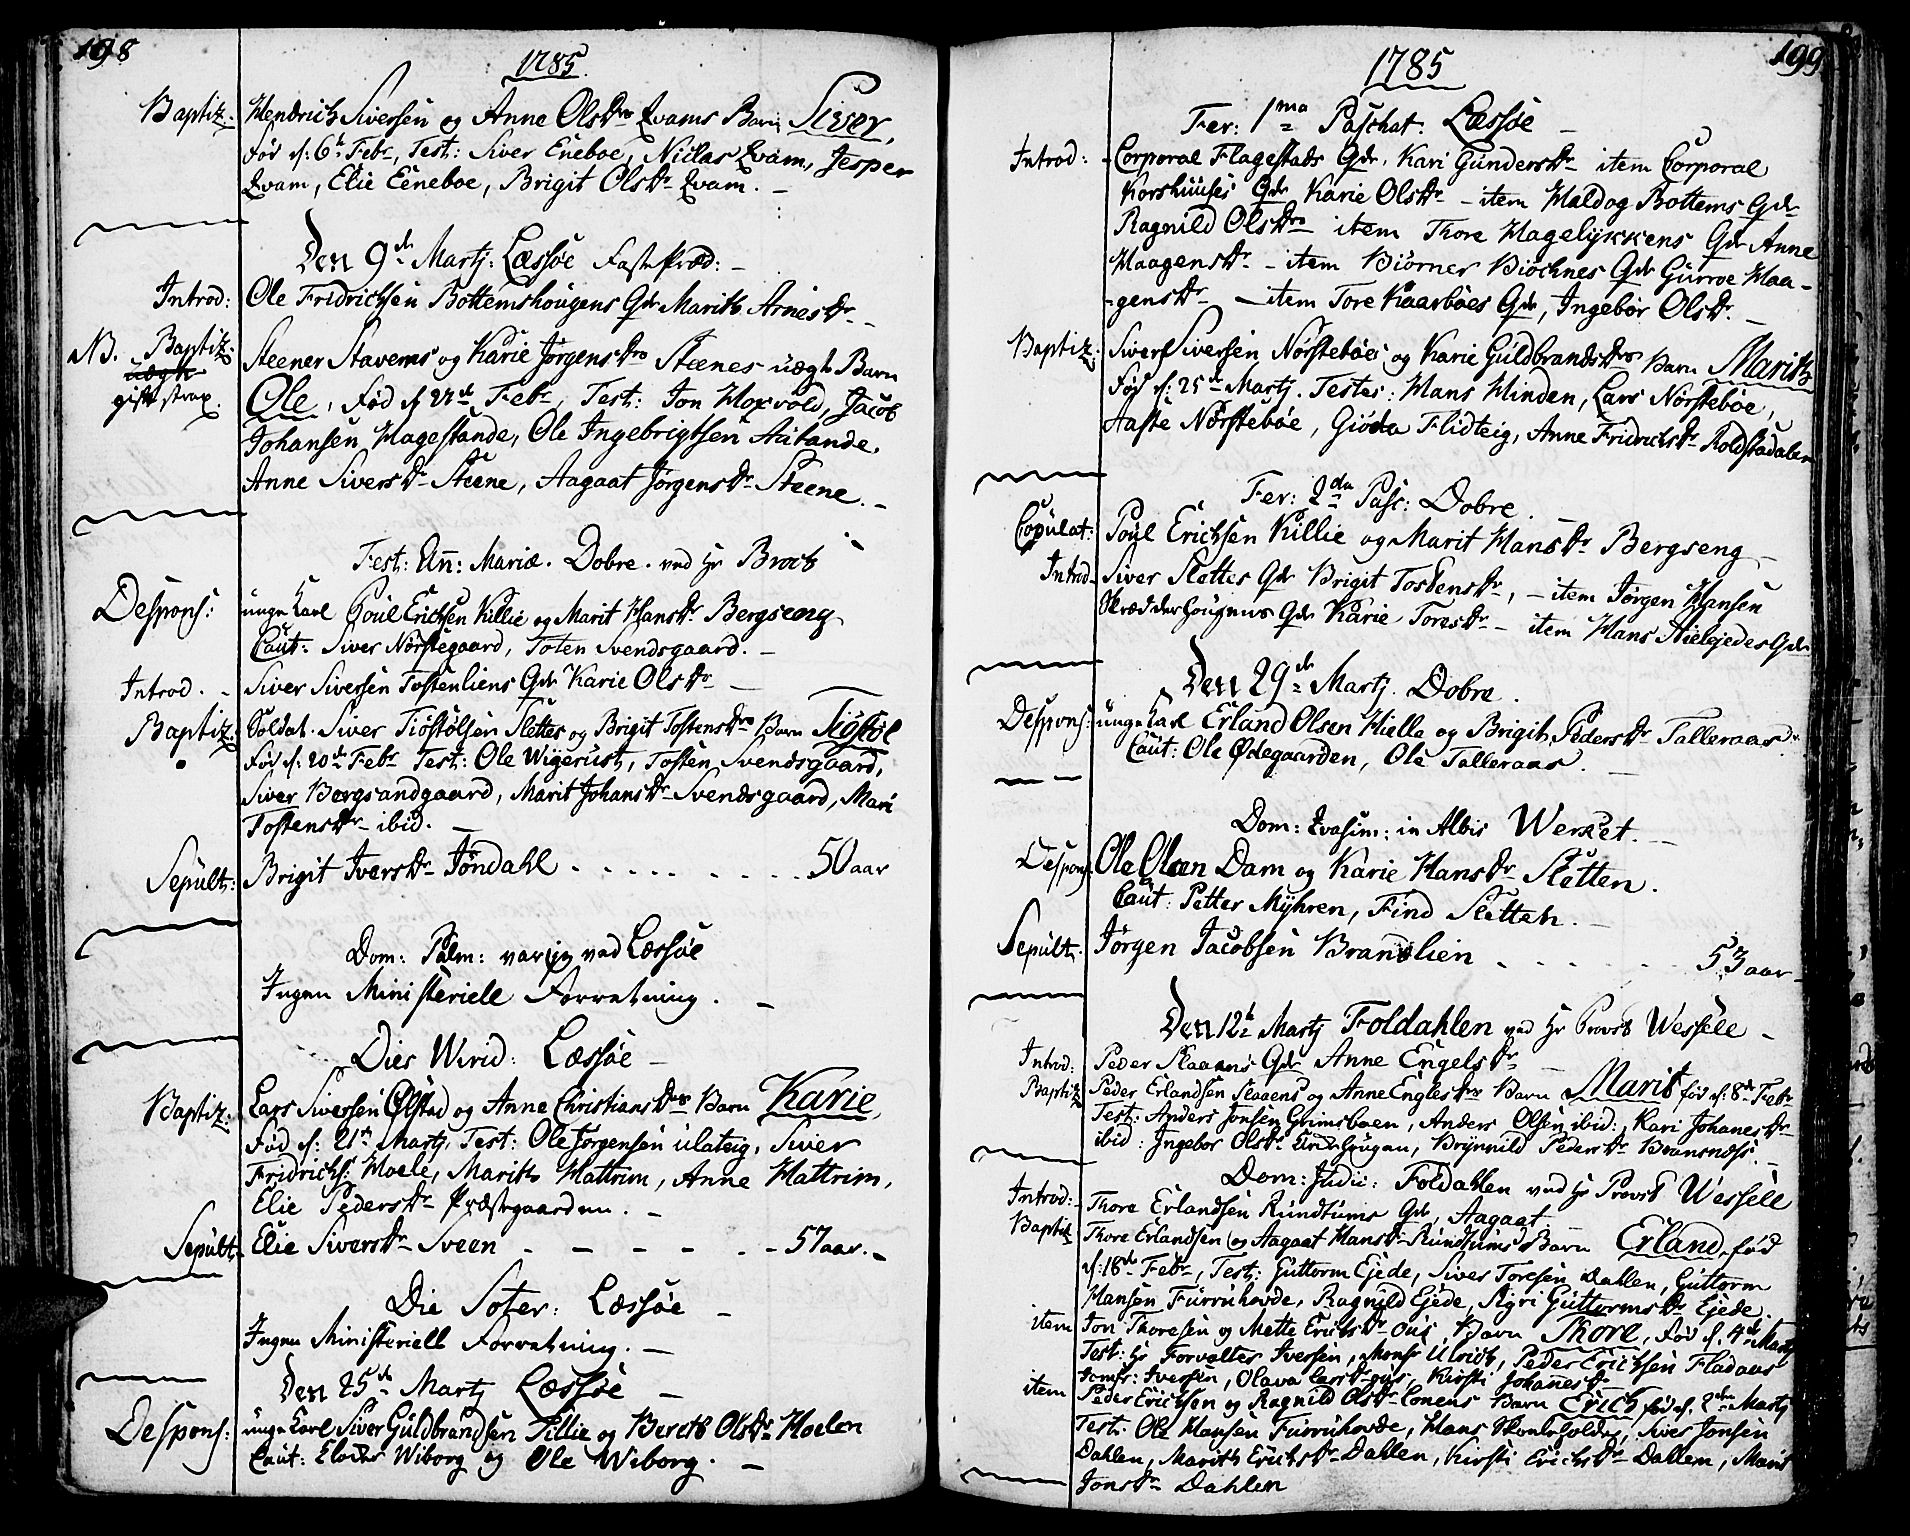 198
1785.
Baptiz: Hendrich Siversen og Anne OlsDr Qvams Barn Siver,
Fød d: 6t Febr, Test: Siver Eneboe, Niclas Qvam, Jesper
Qvam, Elie Eeneboe, Brigit OlsDr Qvam. -
Den 9de Martj: Læssøe FastePræd: -
Introd: Ole Fridrichsen Bottemshougens Qde Marith ArnesDr -
NB. Baptiz: Steener Stavems og Karie JørgensDr Steenes uægte Barn
uægte
gift strax. Ole, Fød d 22de Febr, Test: Jon Hoxvold, Jacob
Johansen Hagestande, Ole Ingebrigtsen Aulande.
Anne SiversDr Steene, Aagaat JørgensDr Steene. -
Fest: An: Mariæ. Dobre. ved Hr Brock
Despons: unge Karl Poul Erichsen Killie og Marit HansDr Bergseng
Caut: Siver Nørstegaard, Tosten Svendsgaard. -
Introd. - Siver Siversen Tostenliens Qde Karie OlsDr -
Baptiz: Soldat. Siver Tiøstølsen Slettes og Brigit TostensDr Barn Tiøstøl
Fød d: 20de Febr Test: Ole Wigerust, Tosten Svendsgaard,
Siver Borgsandgaard, Marit JohansDr Svendsgaard, Mari
TostensDr ibid. -
Sepult: Brigit IversDr Jøndahl . . . . . . . . 50 aar
Dom: Palm: ved Læssøe
Ingen Ministeriele Forretning. -
Dies Virid: Læssøe -
Baptiz: Lars Siversen Ølstad og Anne ChristiansDr Barn Karie,
Fød d: 21de Martj, Test: Ole Jørgensen Ulateig, Siver
Fridrichs: Hoele, Marith Hattrim, Anne Hattrim,
Elie PedersDr Præstegaarden. -
Sepult. Elie SiversDr Sveen - - - - - - 57 aar. -
Die Soter: Læssøe -
Ingen Ministeriell Forretning. -
Den 25de Martj Læssøe -
Despons: unge Karl Siver Guldbrandsen Tillie og Bereth OlsDr Hoelen
Caut: Wiborg og Ole Wiborg. -
199
1785
Fer: 1ma Paschat: Læssøe -
Introd: Corporal Flagestads Qde, Kari GundersDr - item Corporal
Korshuuses Qde Karie OlsDr - item Haldog Bottems Qde
Ragnild OlsDr item Thore Hagelykkens Qde Anne
HaagensDr - item Biørner Qde Gurroe Haa-
-gensDr - item Tore Kaarbøes Qde, Ingebor OlsDr. -
Baptiz: Siver Siversen Nørstebøes og Karie GuldbrandsDr Barn Marith
Fød d: 25de Martj. Testes: Hans Hinden, Lars Nørstebøe,
Aaste Nørstebøe, Giøda Flidteig, Anne FridrichsDr
Fer: 2da Pasc: Dobre.
Copulat: Poul Erichsen Killie og Marit HansDr Bergseng -
Introd- Siver Slettes Qde Brigit TostensDr, - item Jørgen Hansen
Skrædderhougens Qde Karie ToresDr - item Hans Qde
Den 29de Martj. Dobre.
Despons: unge Karl Erland Olsen Hielle og Brigit PedersDr Talleraas.
Caut: Ole Ødegaarden, Ole Talleraas. -
Dom: Qvasim: in Albis Werket. -
Despons. Ole Olsen Dam og Karie HansDr Sletten.
Caut: Petter Myhren, Find Sletten. -
Sepult. Jørgen Jacobsen Brandlien - - - - - 53 aar -
Den 12te Martj Foldahlen ved Hr Provst Wessele -
Introd: Peder Slaaens Qde Anne EngelsDr -
Baptiz Peder Erlandsen Slaaens og Anne EnglesDr Barn Marit fød d: 8de Febr
Test: Anders Jonsen Grimsboen, Anders Olsen ibid:, Kari JohanesDr
ibid: Ingebor OlsDr, Brynnild PedersDr -
Dom: Judic: Foldahlen ved Hr Provst Wessele
Introd: Thore Erlandsen Rundtums Qde, Aagaat.
Baptiz Thore Erlandsen og Aagaat HansDr Rundtums Barn Erland, fød
d: 18de Febr, Test: Guttorm Ejede, Siver Toresen Dahlen, Guttorm
Hansen Furruhovde, Ragnild Ejede, Sigri GuttormsDr Ejede.
item Jon Thoresen og Mette ErichsDr Barn Thore, Fød d. 4de Martj
Test: Hr Forvalter Iversen, Monsr Ulrich, Peder Erichsen Fladaas
Jomfr: Iversen, Olava LarsDr, Kirsti JohannesDr
item Peder Erichsen og Ragnild OlsDr Barn Erich fød d. 2den Martj
Test: Ole Hansen Furruhovde, Hans, Siver Jonsen
Dahlen, Marith ErichsDr Dahlen, Kirsti ErichsDr Dahlen, Marit
JonsDr Dahlen